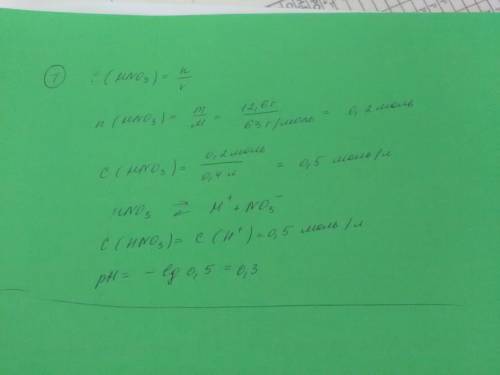 ① C(HNO₃) = n/v
n(HNO₃) = m/M = 12,6г / 63г/моль = 0,2 моль
C(HNO₃) = 0,2 моль / 0,4 л = 0,5 моль/л
HNO₃ ⇄ H⁺ + NO₃⁻
C(HNO₃) = C(H⁺) = 0,5 моль/л
pH = - lg 0,5 = 0,3